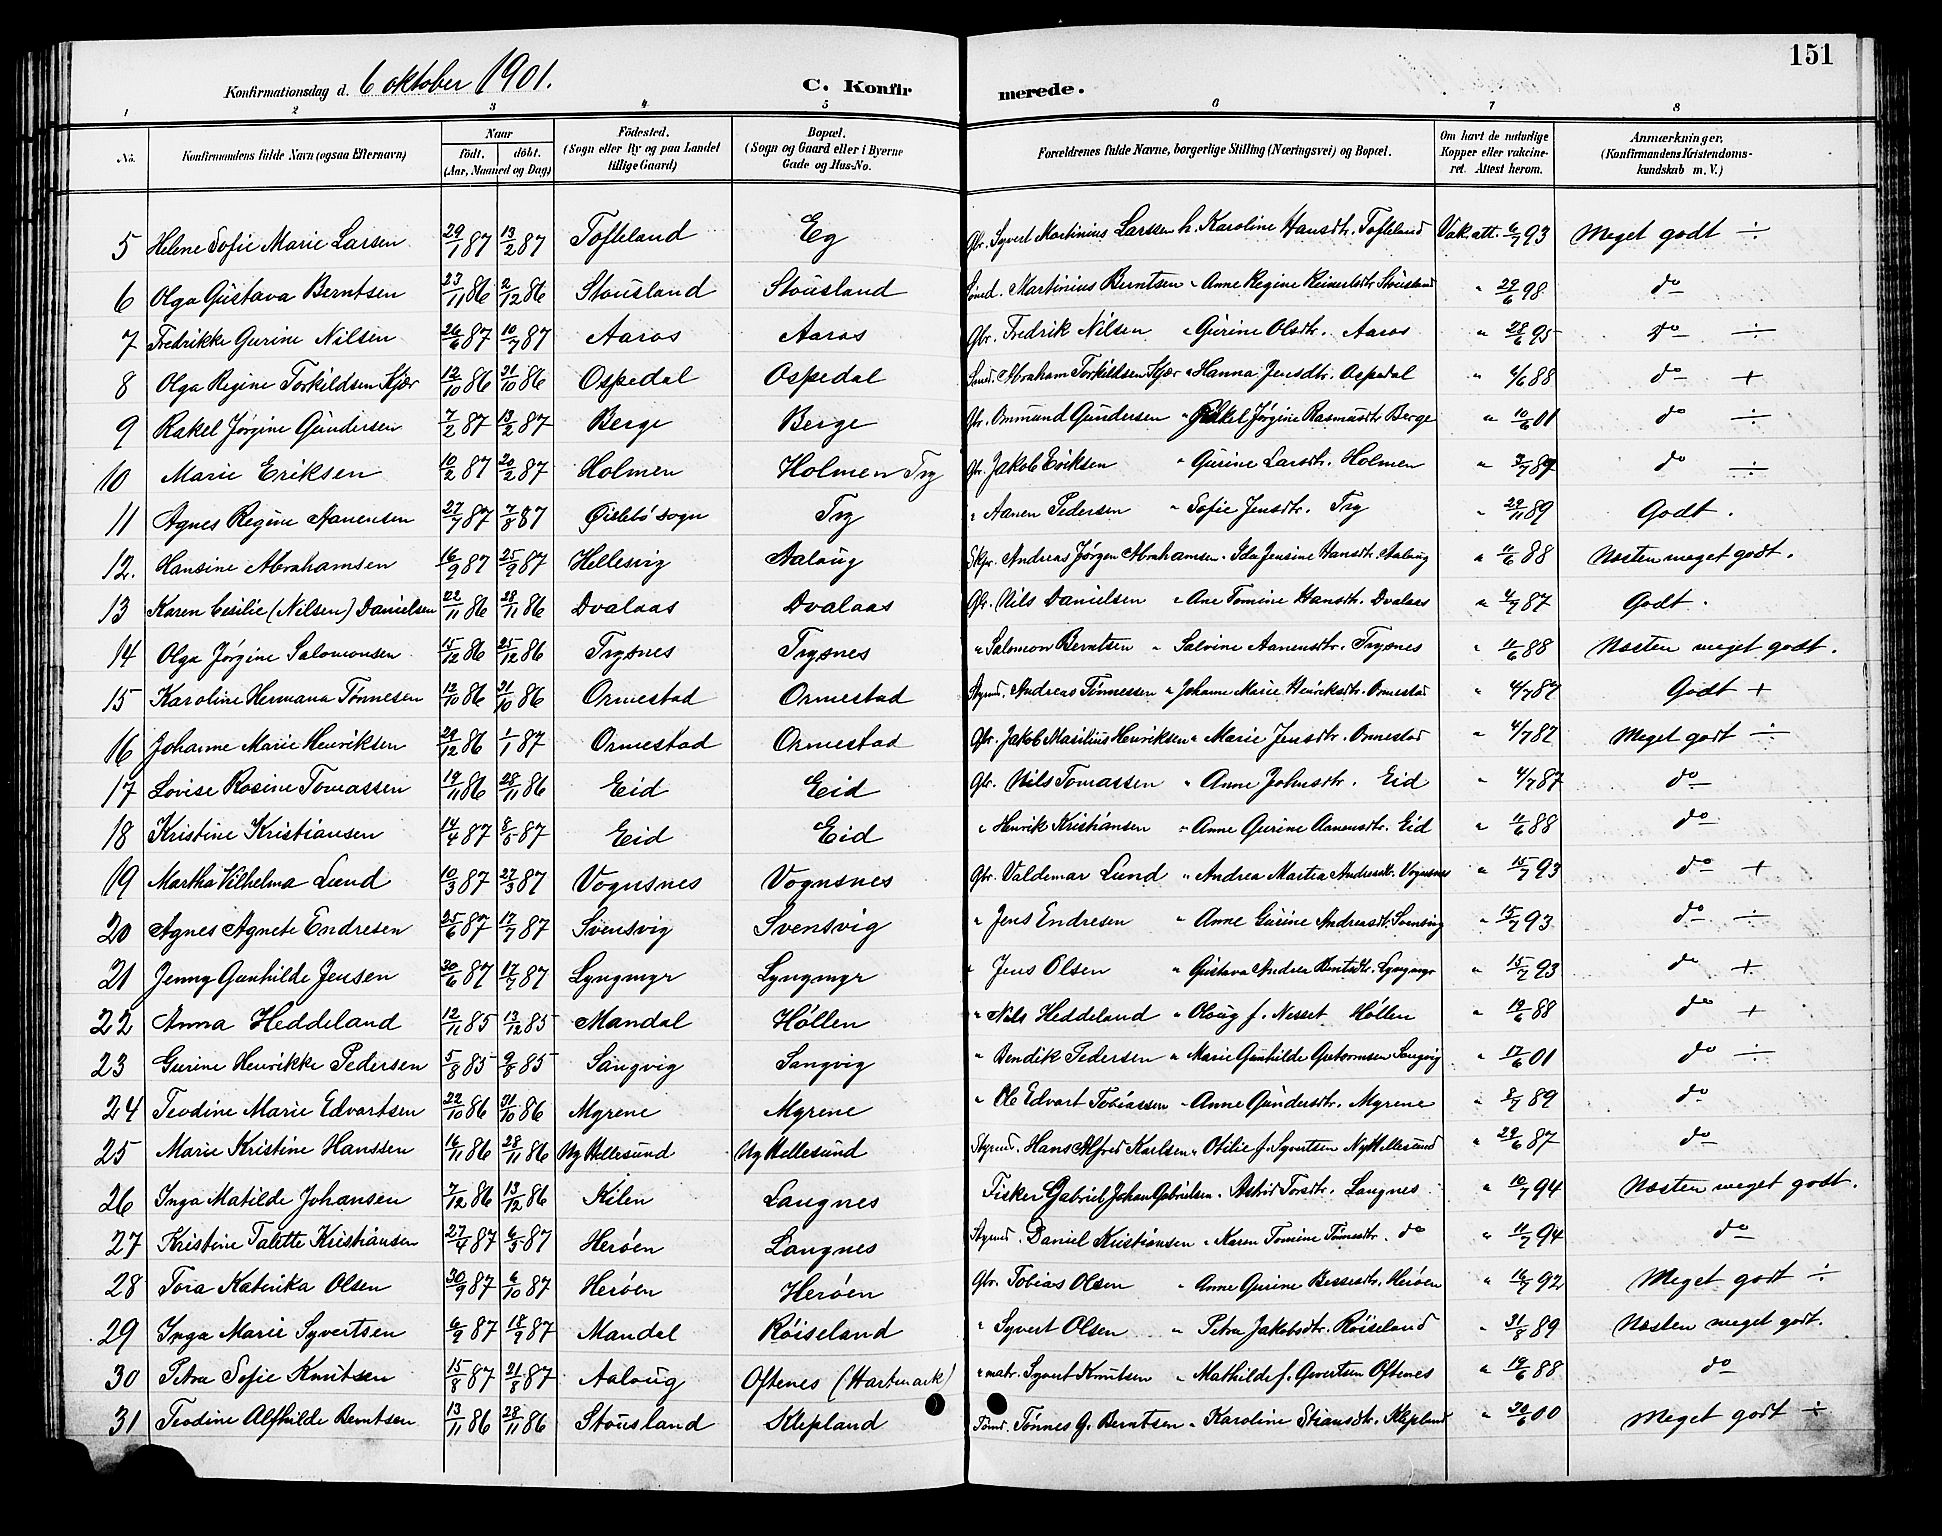 151
Konfirmationsdag d. 6 oktober 1901. C. Konfirmerede.
1 2 3 4 5 6 7 8
No. Konfirmandens fulde Navn (ogsaa Efternavn) Naar födt. döbt. (Aar, Maaned og Dag) Födested. (Sogn eller By og paa Landet tillige Gaard) Bopæl. (Sogn og Gaard eller i Byerne Gade og Hus-No. Forældrenes fulde Navne, borgerlige Stilling (Næringsvei) og Bopæl. Om havt de naturlige Kopper eller vakcineret. Attest herom. Anmærkninger. (Konfirmandens Kristendomskundskab m. V.)
5 Helene Sofie Marie Larsen 29/1 87 13/2 87 Tofteland Eg Gbr. Syvert Martinius Larssen h. Karoline Hansdtr. Tofteland Vak. att. 6/7 93 Meget godt ÷
6 Olga Gustava Berntsen 23/11 86 2/12 86 Stousland Stousland Martinius Berntsen " Anne Regine Reinertsdtr Stousland " 29/6 98 do
7 Fredrikke Gurine Nilsen 26/6 87 10/7 87 Aaros Aaros Gbr. Fredrik Nilsen " Gurine Olsdtr. Aaros " 28/6 95 do ÷
8 Olga Regine Torkildsen Kjær 12/10 86 31/10 86 Ospedal Ospedal Smd. Abraham Torkildsen Kjær " Hanna Jensdtr. Ospedal " 4/6 88 do +
9 Rakel Jørgine Gundersen 7/2 87 13/2 87 Berge Berge Gbr. Ommund Gundersen " Rakel Jørgine Rasmusdtr Berge " 10/6 01 do ÷
10 Marie Eriksen 10/2 87 20/2 87 Holmen Holmen Try Gbr. Jakob Eriksen " Gurine Larsdtr. Holmen " 3/7 89 do ÷
11 Agnes Regine Aanensen 27/7 87 7/8 87 Øislebö sogn Try " Aanen Pedersen " Sofie Jensdtr. Try " 29/11 89 Godt.
12. Hansine Abrahamsen 16/9 87 25/9 87 Hellesvig Aaloug Skpr. Andreas Jørgen Abrahamsen " Ida Jensine Hansdtr. Aaloug " 11/6 88 Næsten meget godt.
13 Karen Cesilie (Nilsen) Danielsen 22/11 86 28/11 86 Dvalaas Dvalaas Gbr. Nils Danielsen " Ane Tomine Hansdtr. Dvalaas " 4/7 87 Godt.
14 Olga Jørgine Salomonsen 15/12 86 25/12 86 Trysnes Trysnes " Salomon Berntsen " Salvine Aanensdtr. Trysnes " 11/6 88 Næsten meget godt.
15 Karoline Hermana Tønnesen 12/10 86 31/10 86 Ormestad Ormestad Stymd. Andreas Tønnessen " Johanne Marie Henriksdtr. Ormestad " 4/7 87 Godt +
16 Johanne Marie Henriksen 29/12 86 1/1 87 Ormestad Ormestad Gbr. Jakob Masilius Henriksen " Marie Jensdtr. Ormestad " 4/7 87 Meget godt ÷
17 Lovise Rosine Tomassen 19/11 86 28/11 86 Eid Eid Gbr. Nils Tomassen " Anne Johnsdtr. Eid " 4/7 87 do
18 Kristine Kristiansen 14/4 87 8/5 87 Eid Eid " Henrik Kristiansen " Anne Gurine Aanensdtr. Eid " 11/6 88 do
19 Martha Vilhelma Lund 10/3 87 27/3 87 Vognsnes Vognsnes Gbr. Valdemar Lund " Andrea Martia Andersdtr. Vognsnes " 15/7 93 do +
20 Agnes Agnete Endresen 25/6 87 17/7 87 Svensvig Svensvig " Jens Endresen " Anne Gurine Andreasdtr. Svensvig " 15/7 93 do ÷
21 Jenny Gunhilde Jensen 30/6 87 17/7 87 Lyngmyr Lyngmyr " Jens Olsen " Gustava Andrea Berntsdtr. Lyngmyr " 15/7 93 do +
22 Anna Heddeland 12/11 85 13/12 85 Mandal Höllen " Nils Heddeland " Oloug f. Nesset Höllen " 19/6 88 do +
23 Gurine Henrikke Pedersen 5/8 85 9/8 85 Sangvig Sangvig " Bendik Pedersen " Marie Gunhilde Guttormsen Sangvig " 17/6 01 do ÷
24 Teodine Marie Edvartsen 22/10 86 31/10 86 Myrene Myrene " Ole Edvart Tobiassen " Anne Gundersdtr. Myrene " 8/7 89 do
25 Marie Kristine Hanssen 16/11 86 28/11 86 Ny Hellesund Ny Hellesund Stymd. Hans Alfred Karlsen " Otilie f. Syvertsen Ny Hellesund " 29/6 87 do
26 Inga Matilde Johansen 7/12 86 13/12 86 Kilen Langnes Fisker Gabriel Johan Gabrielsen " Astrid Torsdtr. Langnes " 10/7 94 Næsten meget godt.
27 Kristine Talette Kristiansen 27/4 87 6/5 87 Heröen Langnes Stymd. Daniel Kristiansen " Karen Tomine Tönnesdtr. do " 11/7 94 do
28 Tora Katerika Olsen 30/9 87 6/10 87 Heröen Heröen Gbr. Tobias Olsen " Anne Gurine Bessesdtr. Heröen " 16/7 92 Meget godt ÷
29 Inga Marie Syvertsen 6/9 87 18/9 87 Mandal Röiseland " Syvert Olsen " Petra Jakobsdtr. Röiseland " 31/8 89 Næsten meget godt.
30 Petra Sofie Knutsen 15/8 87 21/8 87 Aaloug Oftenes (Hartmark) " matr. Syvert Knutsen " Mathilde f. Gevertsen Oftenes " 19/6 88 do
31 Teodine Alfhilde Berntsen 13/11 86 28/11 86 Stousland Klepland Tønnes G. Berntsen " Karoline Stiansdtr. Klepland " 30/6 00 Meget godt ÷